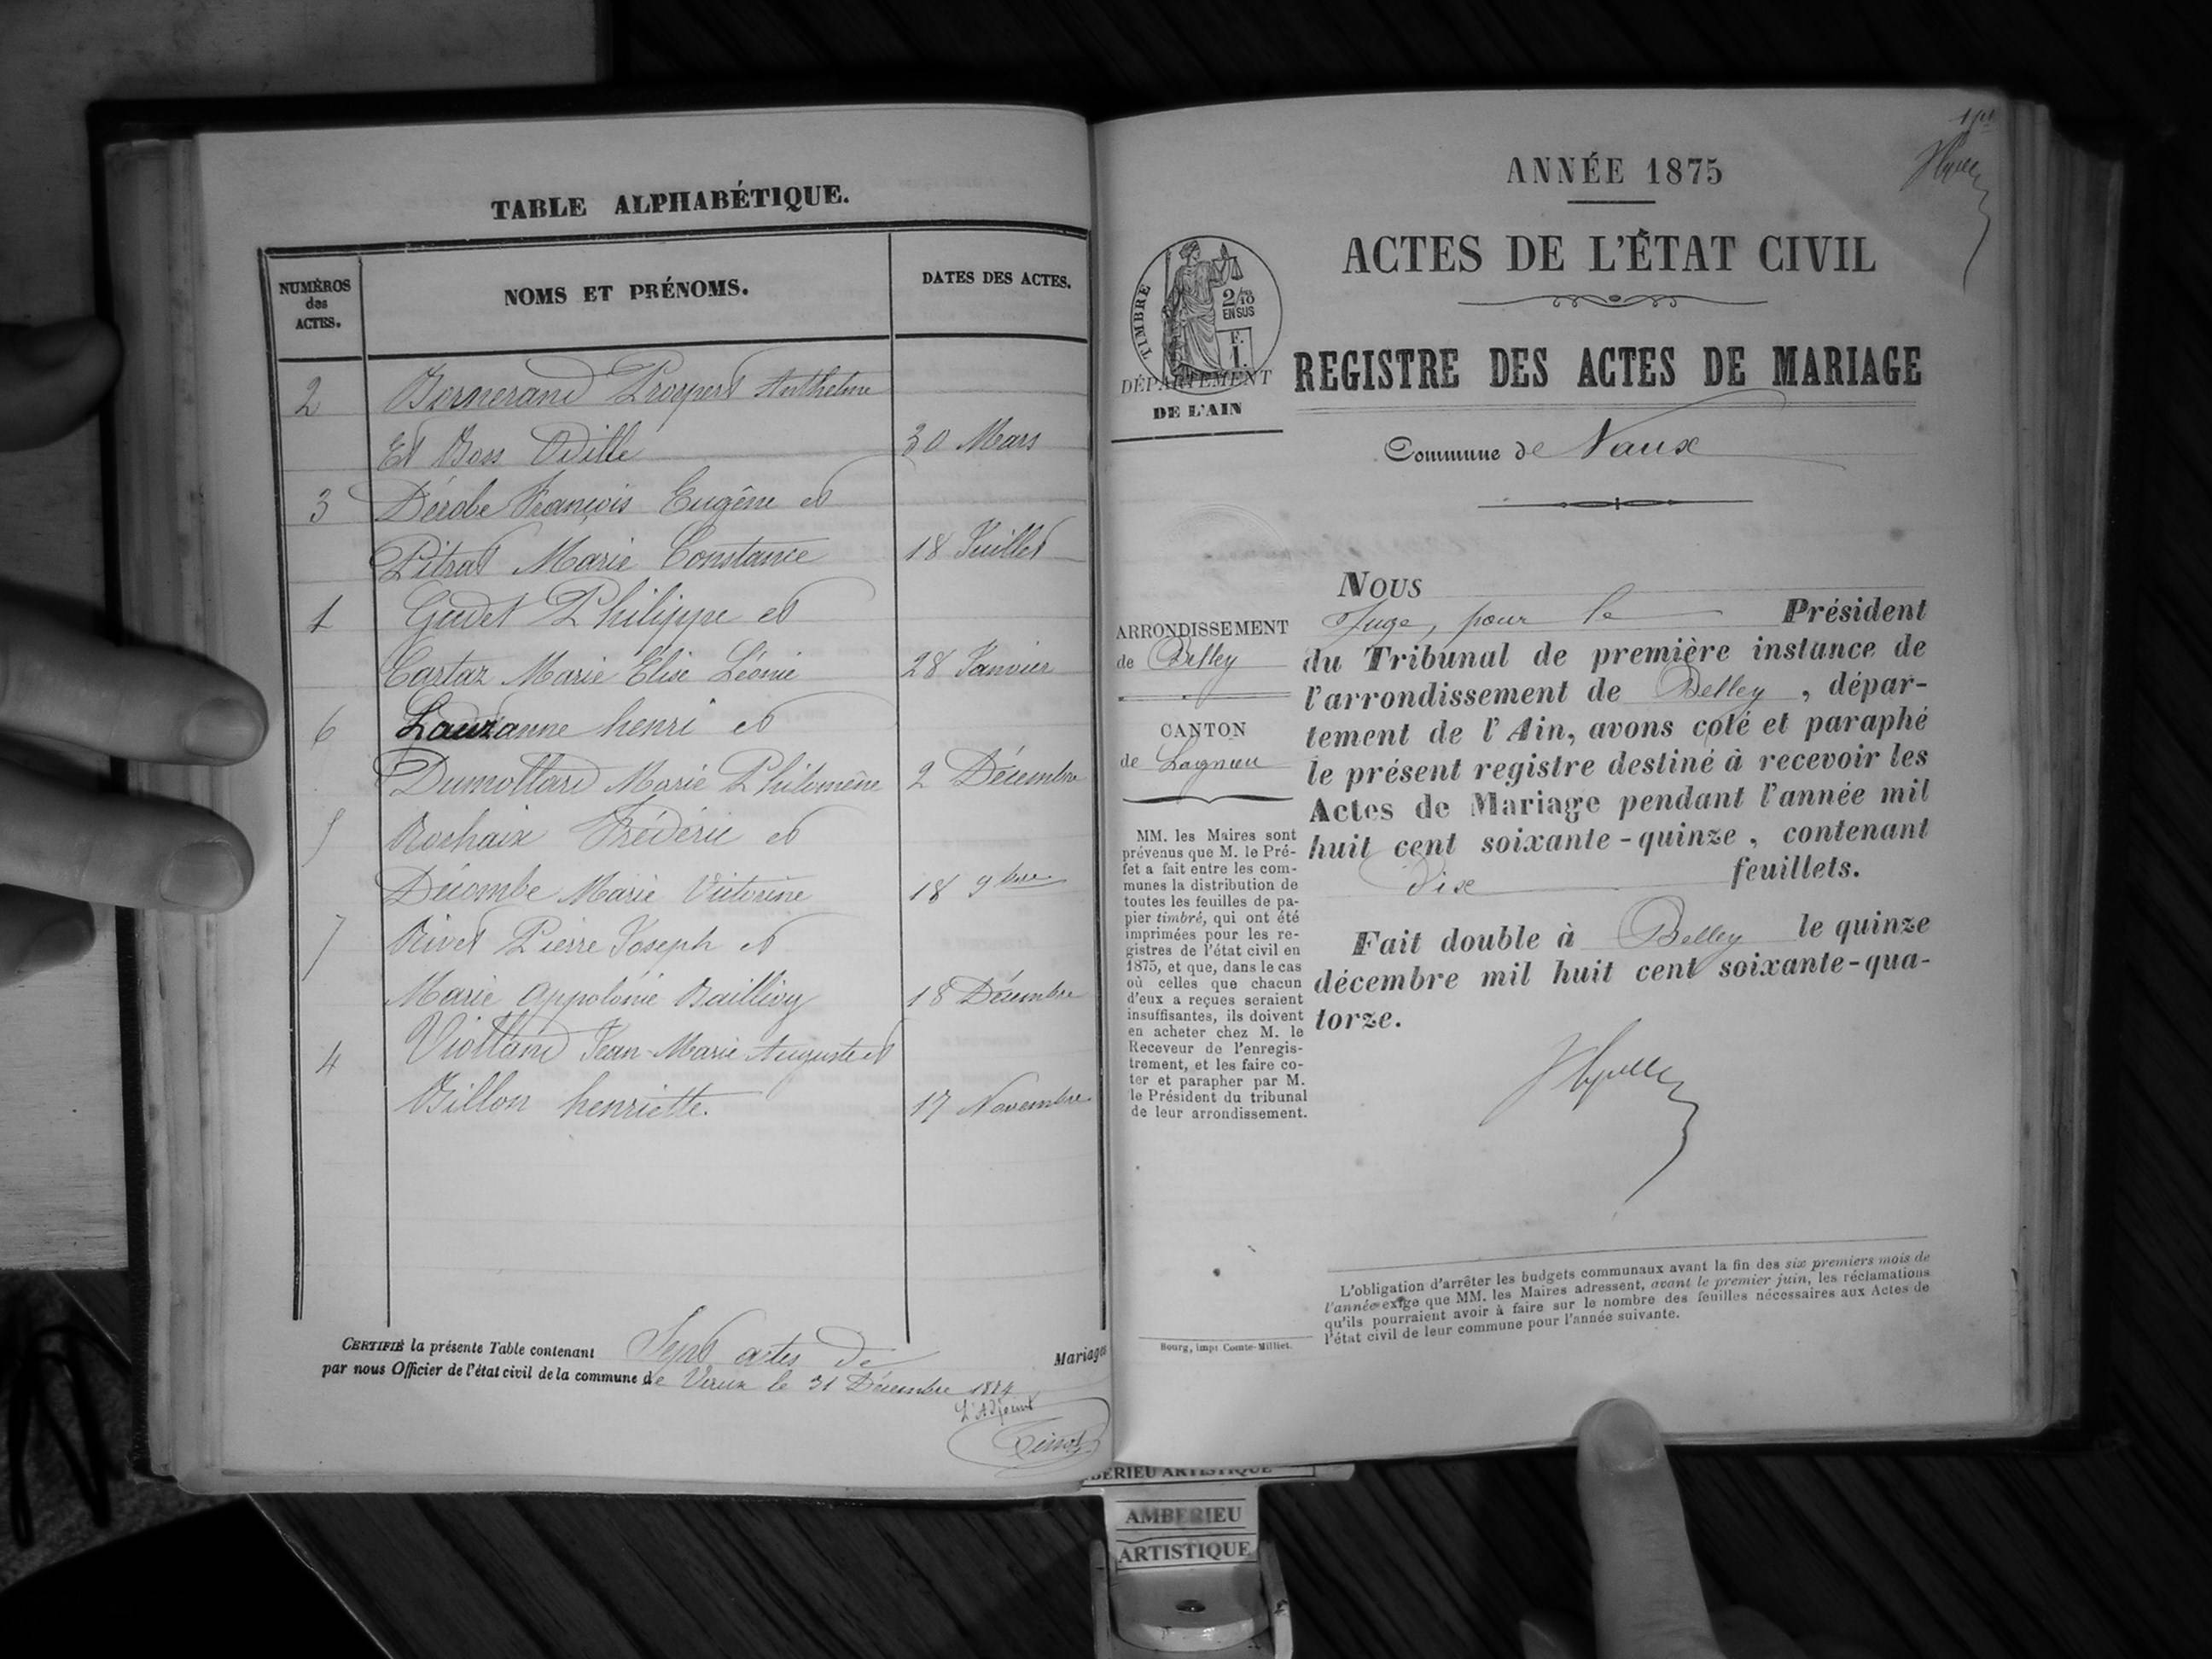 TABLE ALPHABÉTIQUE.
NUMÉROS des ACTES.
NOMS ET PRÉNOMS.
DATES DES ACTES.
2 Bernerand Prosper Anthelme
Et Boss Odille 30 Mars
3 Dérobe François Eugène et
Pitrat Marie Constance 18 Juillet
1 Gudet Philippe et
Castaz Marie Elise Léonie 28 Janvier
6 Lauzanne henri et
Dumollard Marie Philomène 2 Décembre
5 Rochaix Frédéric et
Décombe Marie Victorine 18 9bre
7 Rivet Pierre Joseph et
Marie Appolonie Baillivy 18 Décembre
4 Violland Jean-Marie Auguste et
Billon henriette. 17 Novembre
CERTIFIÉ la présente Table contenant Sept actes de Mariages
par nous Officier de l'état civil de la commune de Vaux le 31 Décembre 1874
L'Adjoint
1er
ANNÉE 1875
ACTES DE L'ÉTAT CIVIL
TIMBRE
2/10
EN SUS
F.
1.
DÉPARTEMENT
DE L'AIN
REGISTRE DES ACTES DE MARIAGE
Commune de Vaux
ARRONDISSEMENT
de Belley
CANTON
de Lagnieu
MM. les Maires sont
prévenus que M. le Pré-
fet a fait entre les com-
munes la distribution de
toutes les feuilles de pa-
pier timbré, qui ont été
imprimées pour les re-
gistres de l'état civil en
1875, et que, dans le cas
où celles que chacun
d'eux a reçues seraient
insuffisantes, ils doivent
en acheter chez M. le
Receveur de l'enregis-
trement, et les faire co-
ter et parapher par M.
le Président du tribunal
de leur arrondissement.
NOUS
Juge, pour le Président
du Tribunal de première instance de
l'arrondissement de Belley, dépar-
tement de l'Ain, avons coté et paraphé
le présent registre destiné à recevoir les
Actes de Mariage pendant l'année mil
huit cent soixante-quinze, contenant
dix feuillets.
Fait double à Belley le quinze
décembre mil huit cent soixante-qua-
torze.
L'obligation d'arrêter les budgets communaux avant la fin des six premiers mois de
l'année exige que MM. les Maires adressent, avant le premier juin, les réclamations
qu'ils pourraient avoir à faire sur le nombre des feuilles nécessaires aux Actes de
l'état civil de leur commune pour l'année suivante.
Bourg, impr Comte-Milliet.
AMBERIEU
ARTISTIQUE